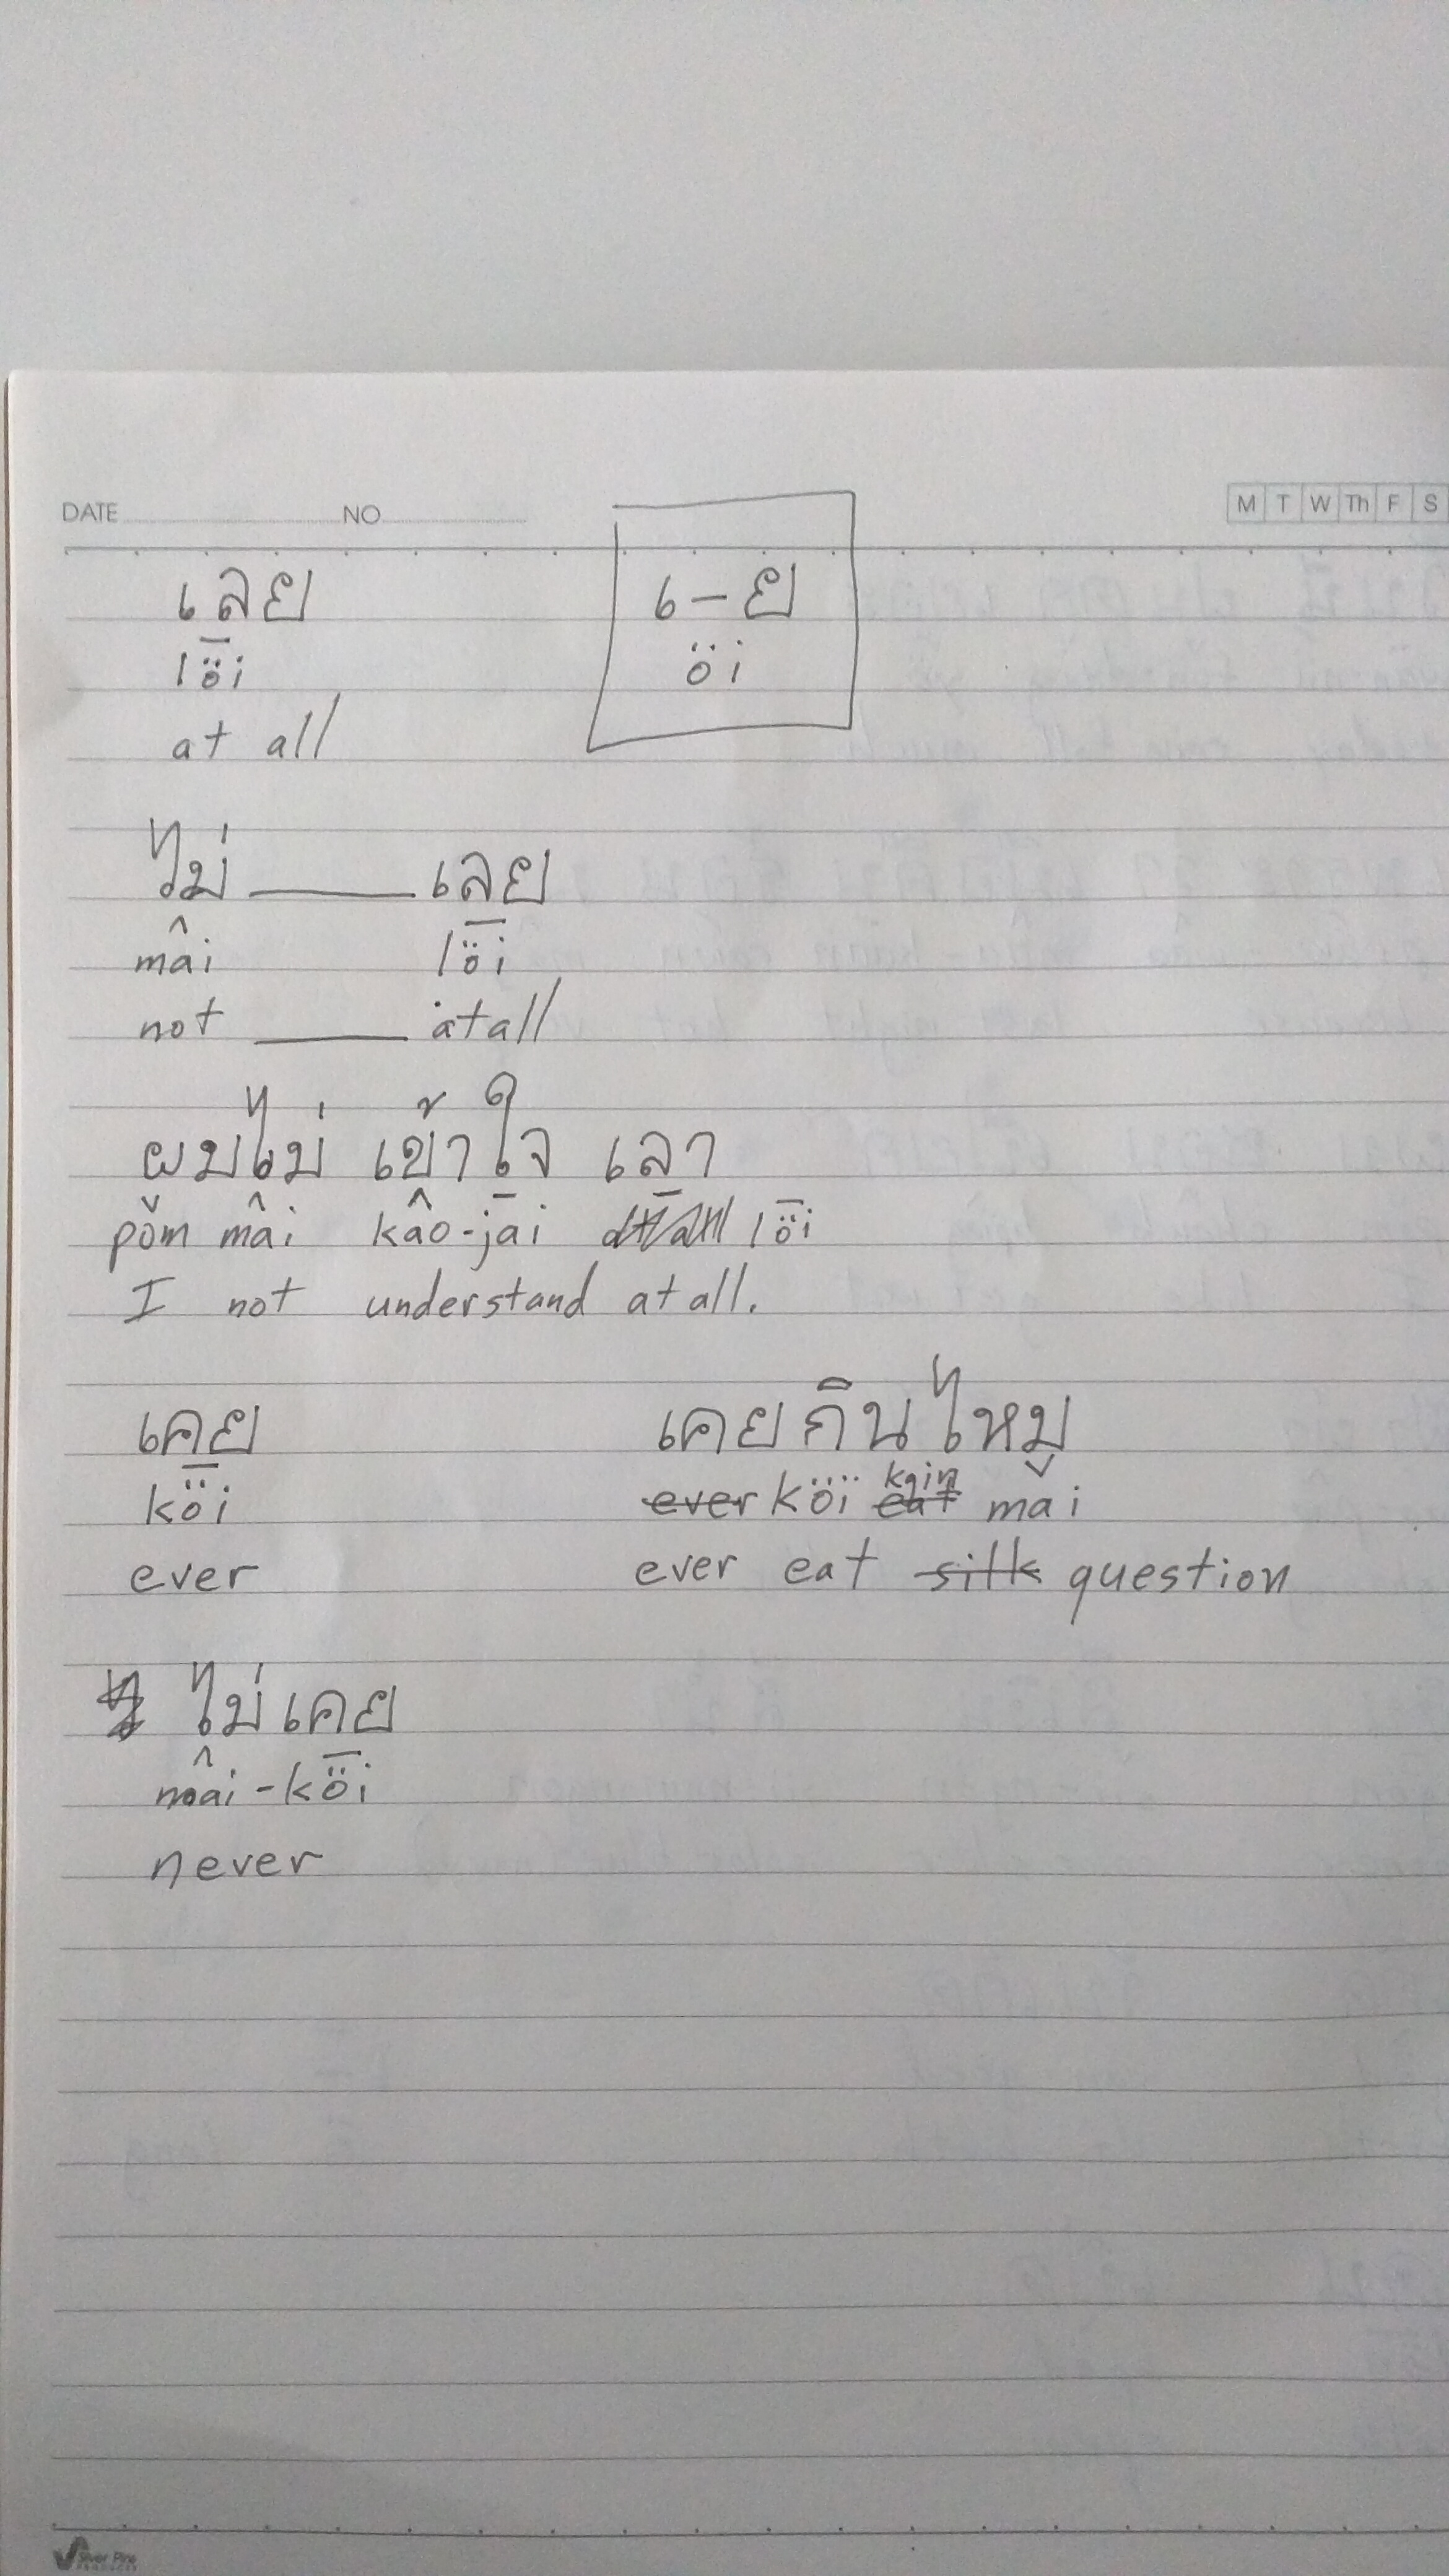 DATE NO M T W Th F S
เลย เ-ย
lȫi öi
at all
ไม่ ____ เลย
mâi lȫi
not ____ at all
ผมไม่ เข้าใจ เลา
pǒm mâi kâo-jāi lȫi
I not understand at all.
เคย เคยกินไหม
kȫi ever köï eat kgin mǎi
ever ever eat silk question
ไม่เคย
mâi-kȫi
never
Silver Pine